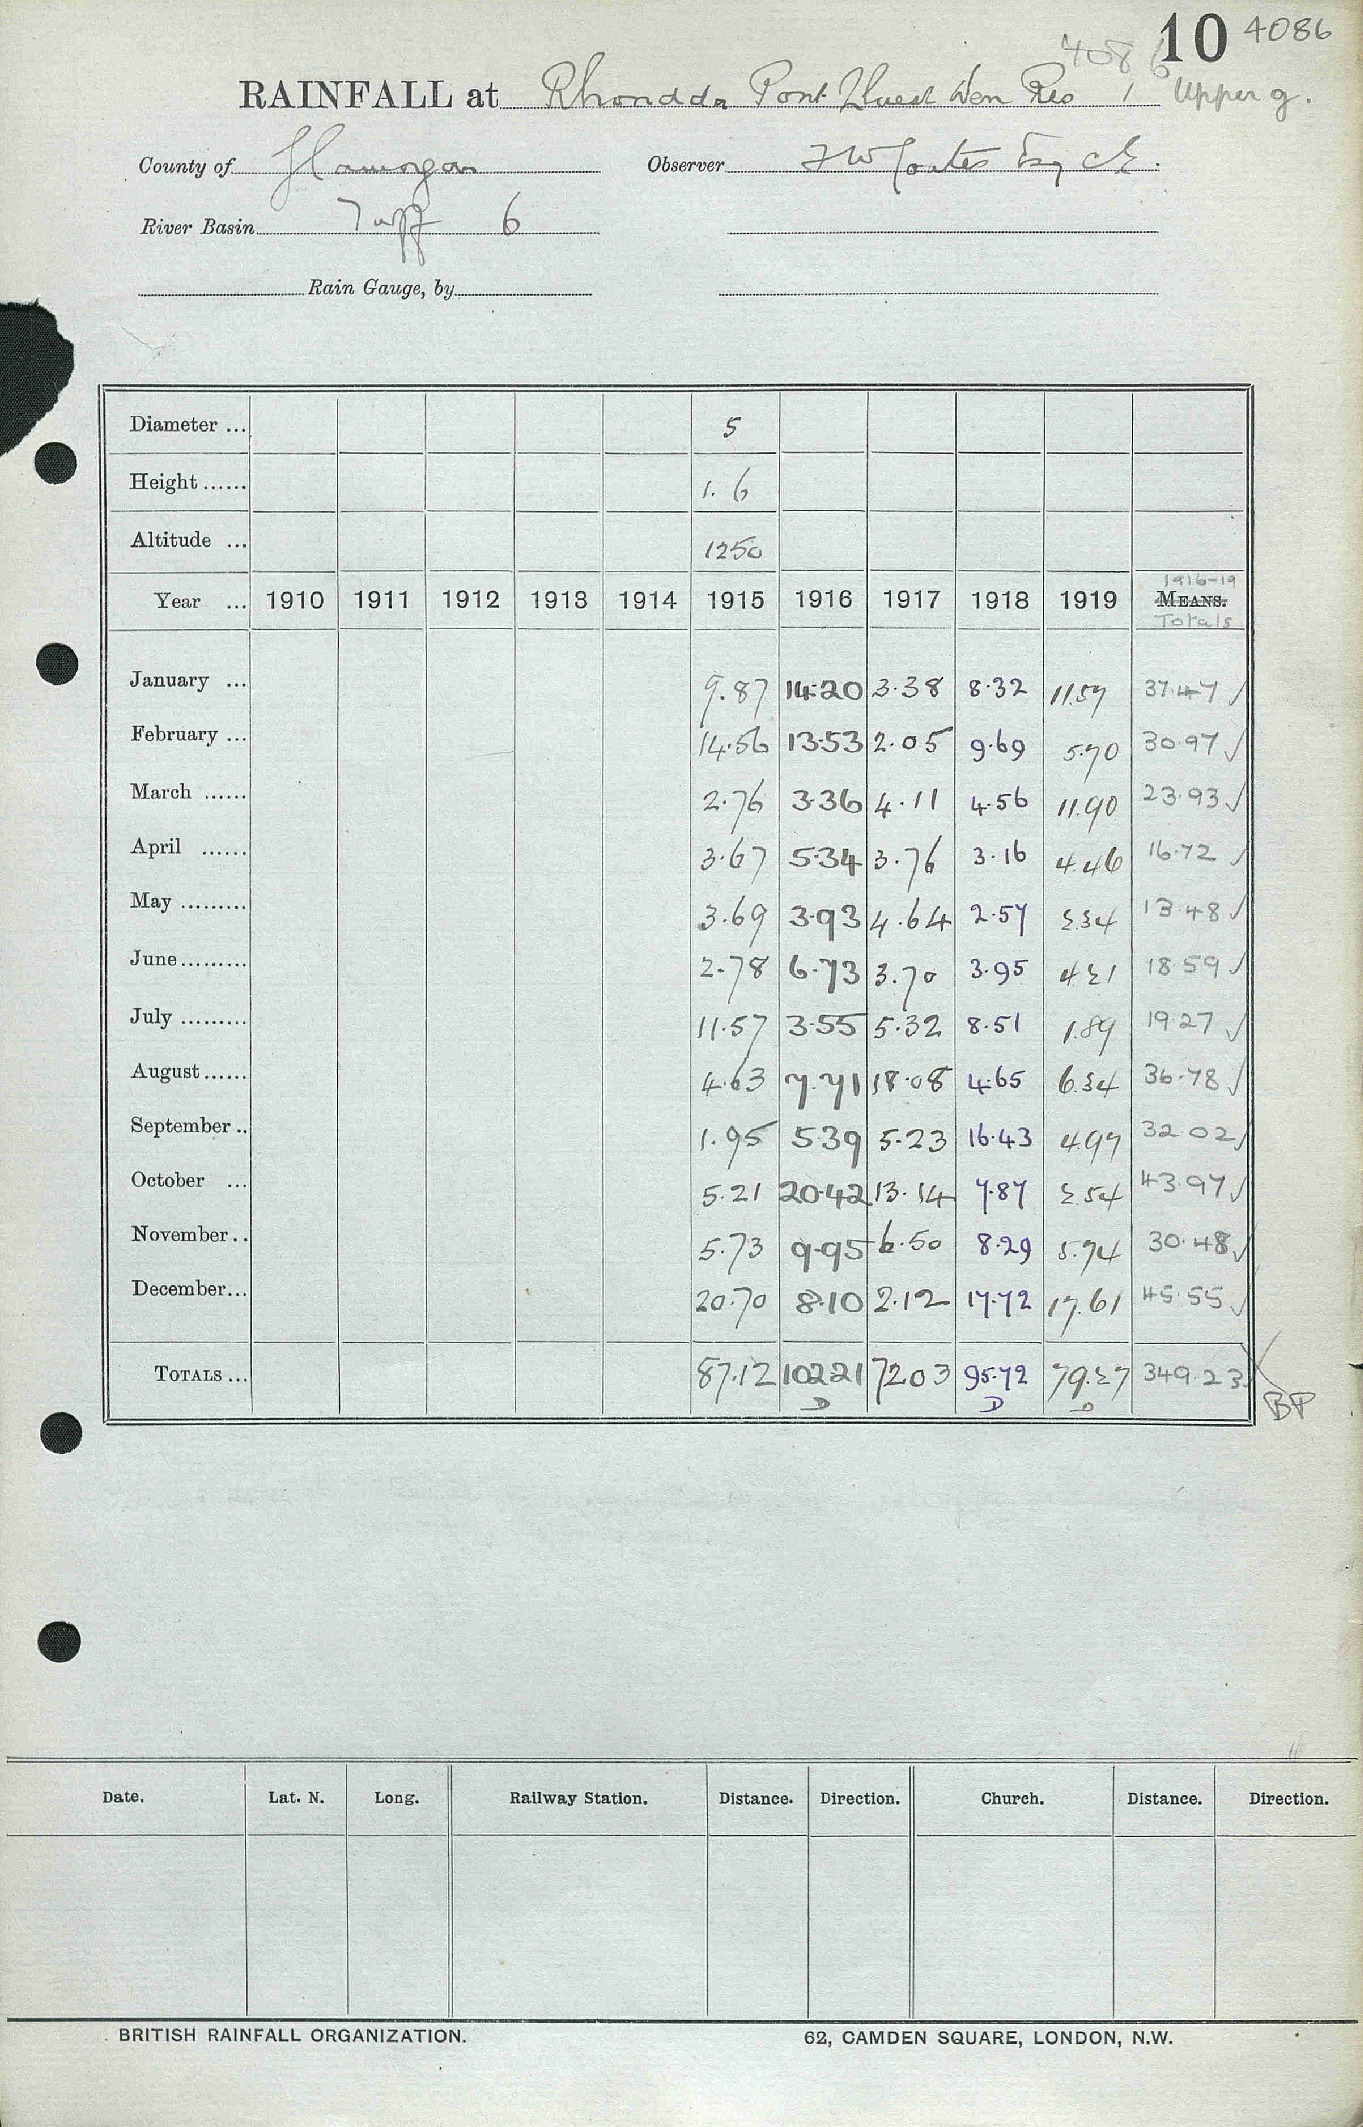 10 4086
4086
RAINFALL at Rhondda Pont Lluest Wen Res 1 Upper g.
County of Glamorgan Observer F W Coates Esq CE.
River Basin Taff 6
Rain Gauge, by
Diameter ... 5
Height ...... 1.6
Altitude ... 1250
1916-19
Year ... 1910 1911 1912 1913 1914 1915 1916 1917 1918 1919 MEANS.
Totals
January ... 9.87 14.20 3.38 8.32 11.57 37.47 ✓
February ... 14.56 13.53 2.05 9.69 5.70 30.97 ✓
March ...... 2.76 3.36 4.11 4.56 11.90 23.93 ✓
April ...... 3.67 5.34 3.76 3.16 4.46 16.72 ✓
May ......... 3.69 3.93 4.64 2.57 2.34 13.48 ✓
June ......... 2.78 6.73 3.70 3.95 4.21 18.59 ✓
July ......... 11.57 3.55 5.32 8.51 1.89 19.27 ✓
August ...... 4.63 7.71 18.08 4.65 6.34 36.78 ✓
September .. 1.95 5.39 5.23 16.43 4.97 32.02 ✓
October ... 5.21 20.42 13.14 7.87 2.54 43.97 ✓
November .. 5.73 9.95 6.50 8.29 5.74 30.48 ✓
December ... 20.70 8.10 2.12 17.72 17.61 45.55 ✓
TOTALS ... 87.12 102.21 72.03 95.72 79.27 349.23
D D D BP
Date. Lat. N. Long. Railway Station. Distance. Direction. Church. Distance. Direction.
BRITISH RAINFALL ORGANIZATION. 62, CAMDEN SQUARE, LONDON, N.W.